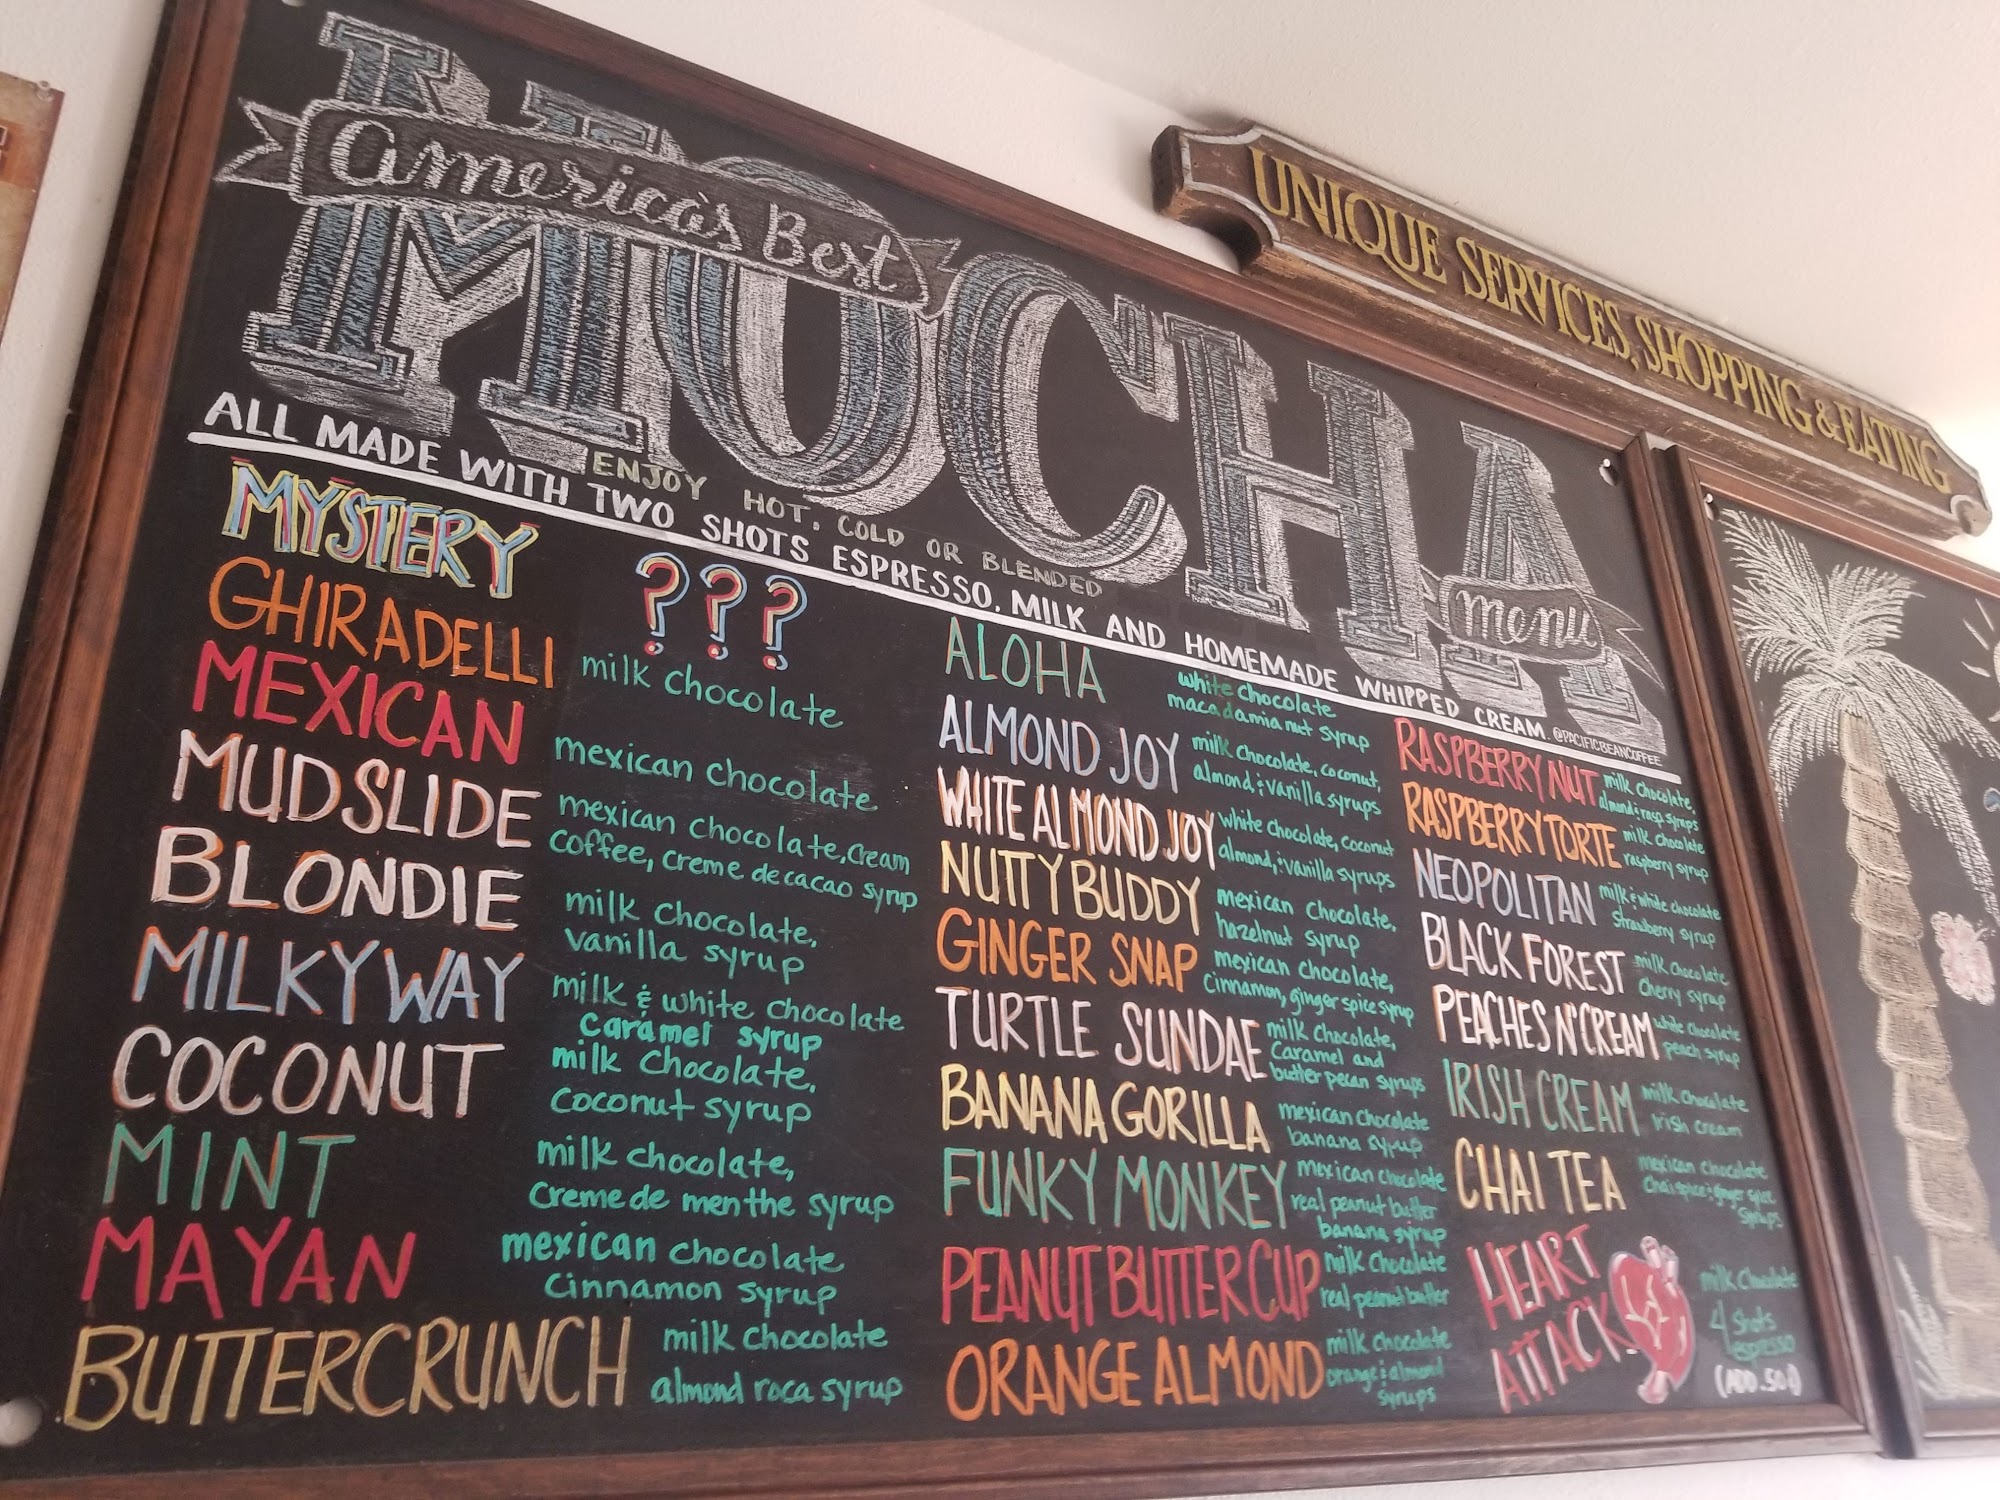 America's Best
MOCHA
menu
ENJOY HOT, COLD OR BLENDED
ALL MADE WITH TWO SHOTS ESPRESSO, MILK AND HOMEMADE WHIPPED CREAM.
@PACIFICBEANCOFFEE
MYSTERY ???
GHIRADELLI milk chocolate
MEXICAN mexican chocolate
MUDSLIDE mexican chocolate, cream
coffee, creme de cacao syrup
BLONDIE milk chocolate,
vanilla syrup
MILKY WAY milk & white chocolate
caramel syrup
COCONUT milk chocolate,
coconut syrup
MINT milk chocolate,
creme de menthe syrup
MAYAN mexican chocolate
cinnamon syrup
BUTTERCRUNCH milk chocolate
almond roca syrup
ALOHA white chocolate
macadamia nut syrup
ALMOND JOY milk chocolate, coconut,
almond & vanilla syrups
WHITE ALMOND JOY white chocolate, coconut
almond, & vanilla syrups
NUTTY BUDDY mexican chocolate,
hazelnut syrup
GINGER SNAP mexican chocolate,
cinnamon, ginger spice syrup
TURTLE SUNDAE milk chocolate,
caramel and
butter pecan syrups
BANANA GORILLA mexican chocolate
banana syrup
FUNKY MONKEY mexican chocolate
real peanut butter
banana syrup
PEANUT BUTTER CUP milk chocolate
real peanut butter
ORANGE ALMOND milk chocolate
orange & almond
syrups
RASPBERRY NUT milk chocolate,
almond & rasp syrups
RASPBERRY TORTE milk chocolate
raspberry syrup
NEOPOLITAN milk & white chocolate
strawberry syrup
BLACK FOREST milk chocolate
cherry syrup
PEACHES N' CREAM white chocolate
peach syrup
IRISH CREAM milk chocolate
irish cream
CHAI TEA mexican chocolate
chai spice & ginger spice
syrups
HEART
ATTACK
milk chocolate
4 shots
espresso
(ADD .50¢)
UNIQUE SERVICES, SHOPPING & EATING